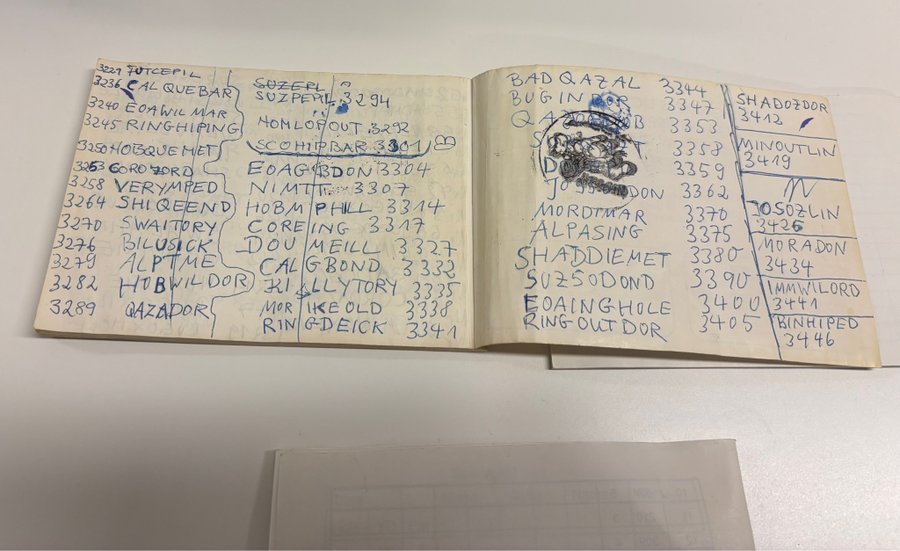 3221 TUTCEPIL
3236 CALQUEBAR
3240 EOAWILMAR
3245 RINGHIPING
3250 HOBQUEMET
3253 CORDZORD
3258 VERYMPED
3264 SHIQEEND
3270 SWAITORY
3276 BILUSICK
3279 ALPTME
3282 HOBWILDOR
3289 QAZADOR
SUZEPL ?
SUZPEPIL 3294
HOMLOPOUT 3292
SCOHIPBAR 3301 B
EOAGBDON 3304
NIMTT 3307
HOBMPHILL 3314
COREING 3317
DOUMEILL 3327
CALGBOND 3332
KILLYTORY 3335
MORIKEOLD 3338
RINGDEICK 3341
BADQAZAL 3344
BUGINDOR 3347
3353
3358
3359
3362
MORDIMAR 3370
ALPASING 3375
SHADDIEMET 3380
SUZSODOND 3390
EOAINGHOLE 3400
RINGOUTDOR 3405
SHADOZDOR
3412
MINOUTLIN
3419
JOSOZLIN
3426
MORADON
3434
IMMWILORD
3441
BINHIPED
3446